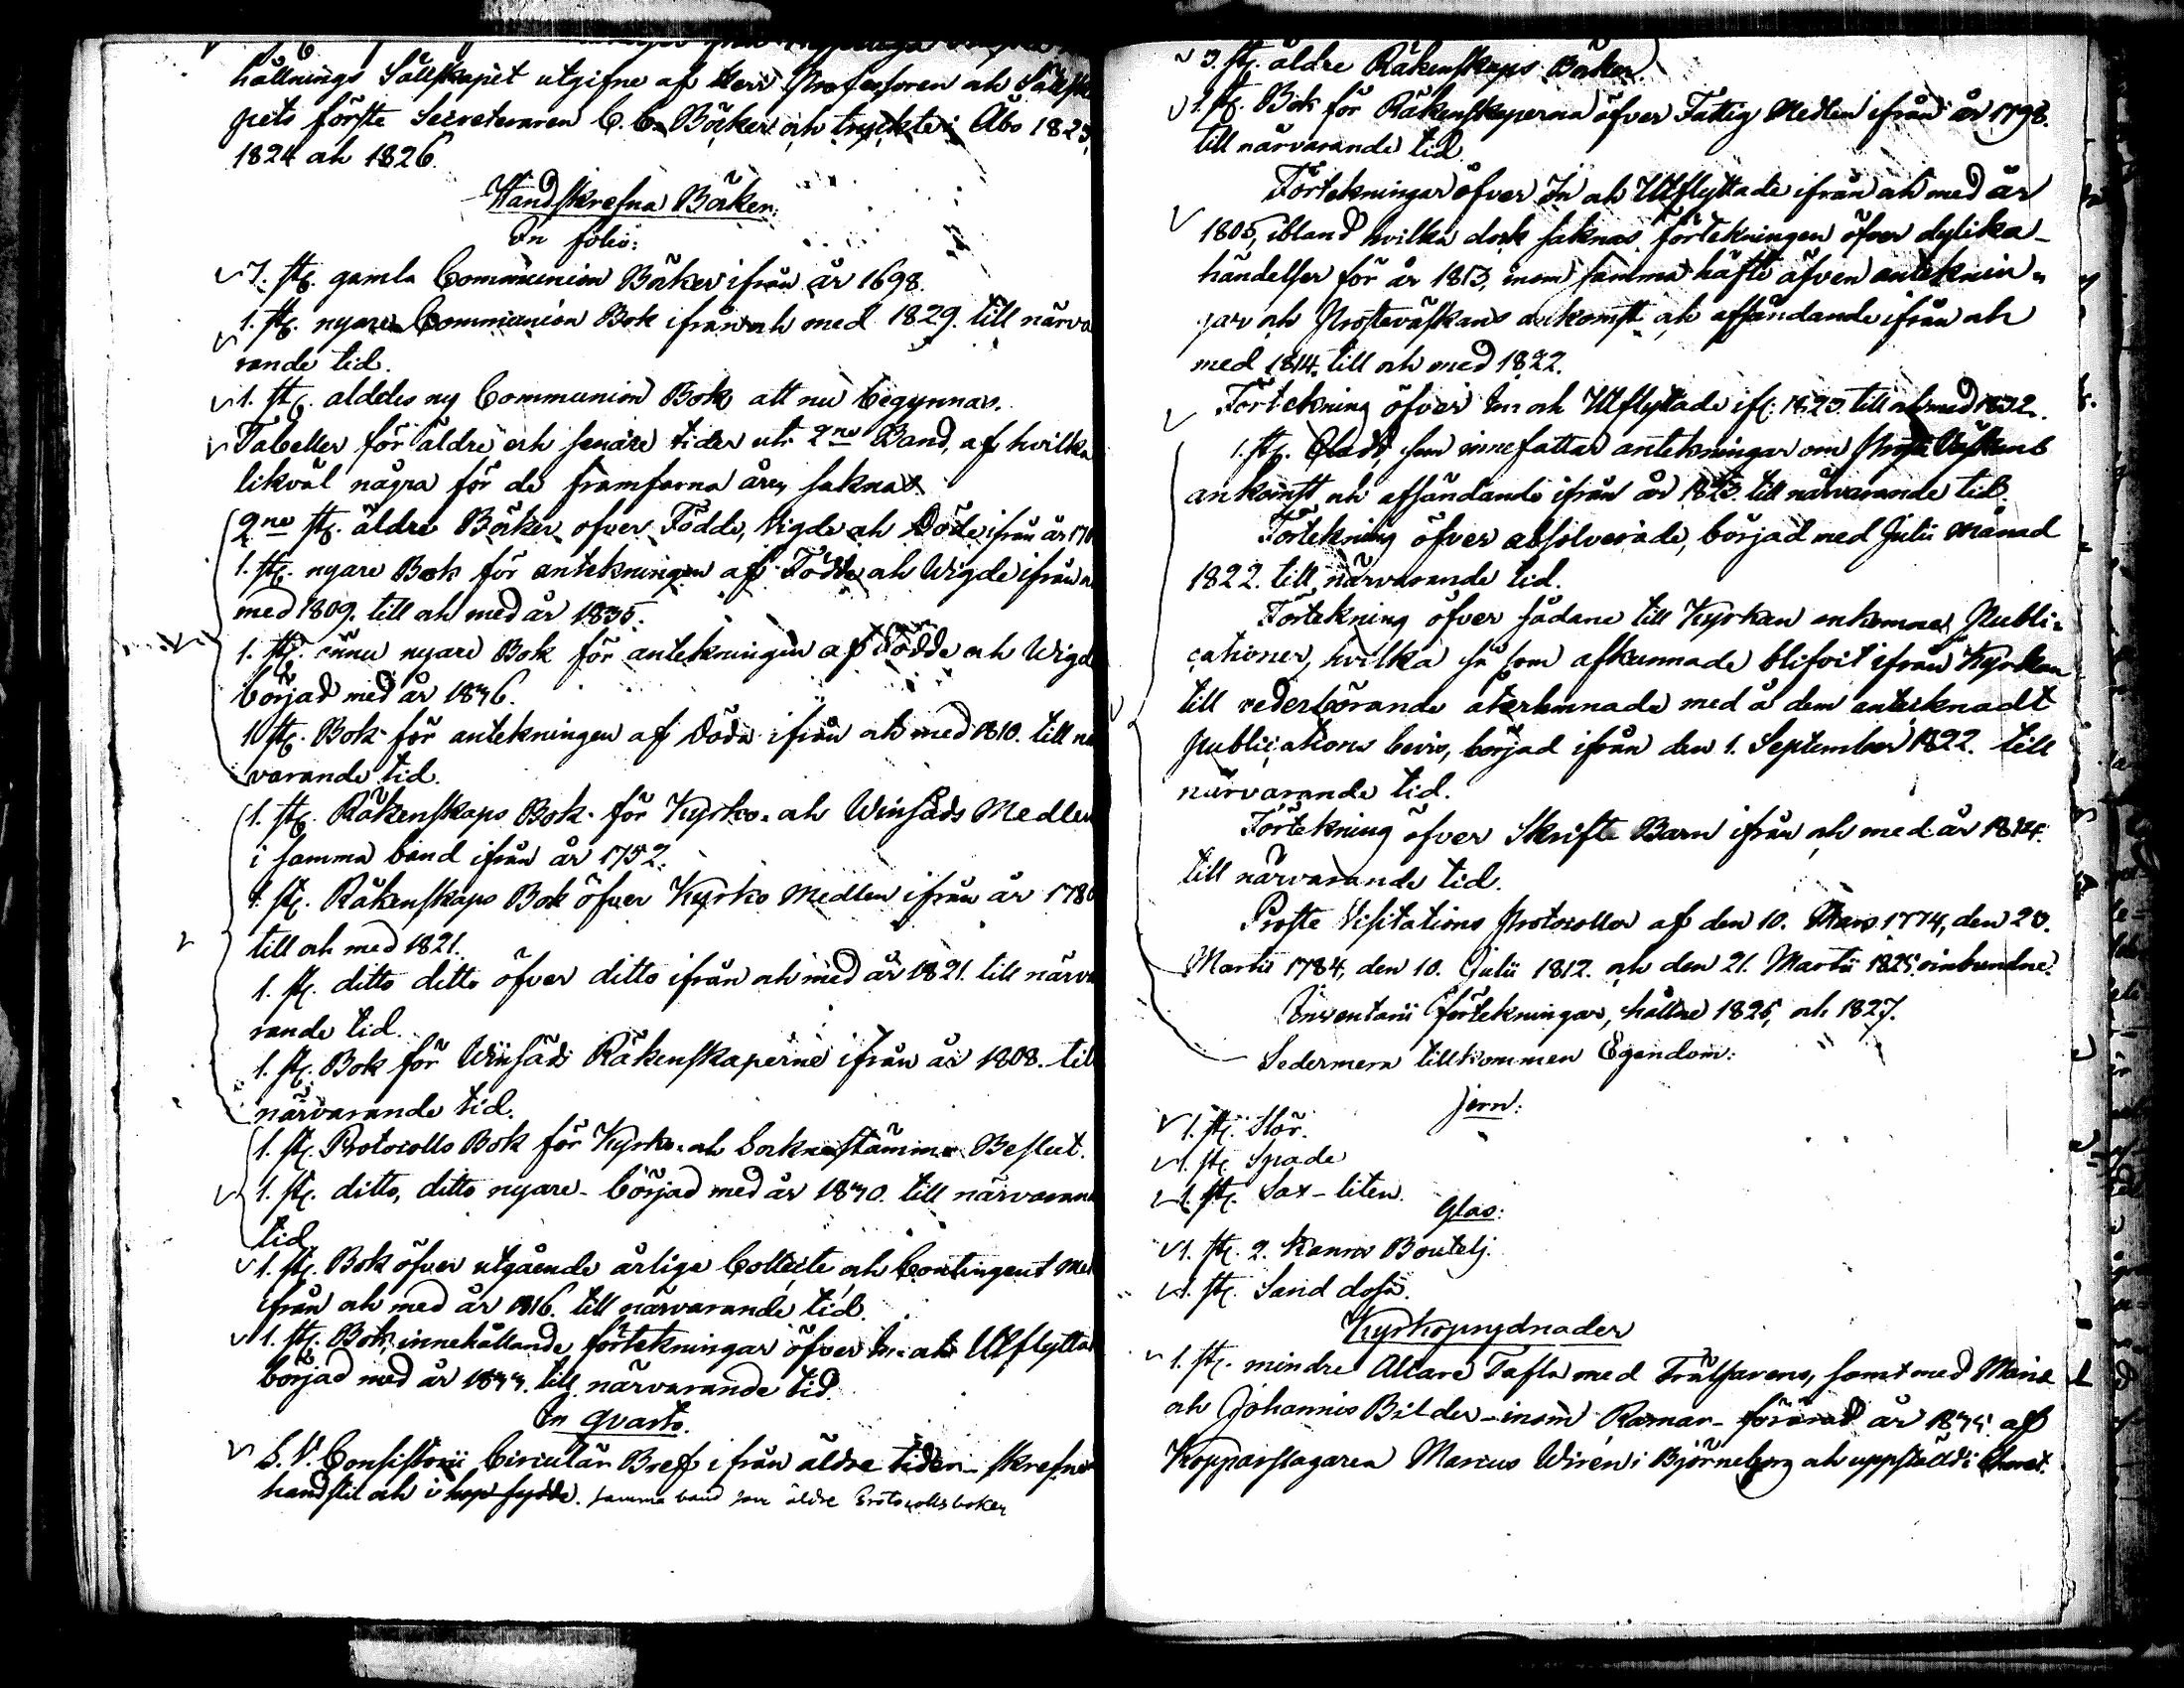 hållnings Sällskapet utgifne af Herr Professoren och Sällska
pets förste Secreteraren C. C. Böcker och tryckte i Åbo 1823,
1824 och 1826.
Handskrefna Böcker:
In folio:
7. st. gamla Communion Böcker ifrån år 1698.
1. st. nyare Communion Bok ifrån och med 1829. till närva
rande tid.
1. st. aldeles ny Communion Bok att nu begynnas.
Tabeller för äldre och senare tider uti 2ne Band, af hvilka
likväl några för de framfarna åren saknas.
2ne st. äldre Böcker öfver Födde, Vigde och Döde ifrån år 17
1. st. nyare Bok för anteckningen af Födde och Wigde ifrån
med 1809. till och med år 1835.
1. st. ännu nyare Bok för anteckningen af Födde och Wigde
börjad med år 1836.
1. st. Bok för anteckningen af Döda ifrån och med 1810. till när
varande tid.
1. st. Räkenskaps Bok för Kyrko- och Winsäds Medlen
i samma band ifrån år 1752.
1. st. Räkenskaps Bok öfver Kyrko Medlen ifrån år 178
till och med 1821.
1. st. ditto ditto öfver ditto ifrån och med år 1821. till närva
rande tid.
1. st. Bok för Winsäds Räkenskaperne ifrån år 1808. till
närvarande tid.
1. st. Protocolls Bok för Kyrko- och Sockne stämmo Beslut.
1. st. ditto, ditto nyare - börjad med år 1830. till närvarande
tid.
1. st. Bok öfver utgående årliga Collecte och Contingent Med
ifrån och med år 1816. till närvarande tid.
1. st. Bok, innehållande förtekningar öfver In- och Utflyttade
börjad med år 1833. till närvarande tid.
In Qvarto.
S. V. Consistorii Circulär Bref ifrån äldre tider - skrefne
handstil och i hop sydde. samma band som äldre Protocollsboken
3. st. äldre Räkenskaps Böcker.
1. st. Bok för Räkenskaperna öfver Fattig Medlen ifrån år 1798.
till närvarande tid.
Förtekningar öfver In och Utflyttade ifrån och med år
1805, ibland hvilka dock saknas förtekningen öfver dylika
händelser för år 1813, inom samma häfte äfven antecknin-
gar och Prosteväskans ankomst och affändande ifrån och
med 1814. till och med 1822.
Förtekning öfver In och Utflyttade ifr. 1823. till och med 1832.
1. st. som innefattar anteckningar om Proste Väskans
ankomst och affändande ifrån år 1823. till närvarande tid.
Förtekning öfver absolverade, börjad med Julii Månad
1822. till närvarande tid.
Förtekning öfver sådane till Kyrkan ankomne Publi-
cationer, hvilka så som afkunnade blifvit ifrån Kyrkan
till vederbörande återlemnade med å dem antecknadt
Publications bevis, börjad ifrån den 1. September 1822. till
närvarande tid.
Förtekning öfver Skrifte Barn ifrån och med år 1814.
till närvarande tid.
Proste Visitations Protocoller af den 10. Mars 1774, den 23.
Martii 1784, den 10. Julii 1812. och den 21. Martii 1825. oinbundne.
Inventarii förtekningar, hållne 1825, och 1827.
Sedermera tillkommen Egendom:
Jern:
1. st. Stör.
1. st. Spade
1. st. Sax - liten.
Glas:
1. st. 2. Kannors Boutelj.
1. st. Sand dosa.
Kyrkoprydnader
1. st. mindre Altare Tafla med Frälsarens, samt med Mariæ
och Johannis Bilder - inom Ramar - förärad år 1835. af
Kopparslagaren Marcus Wirén i Björneborg och uppställd i Choret.